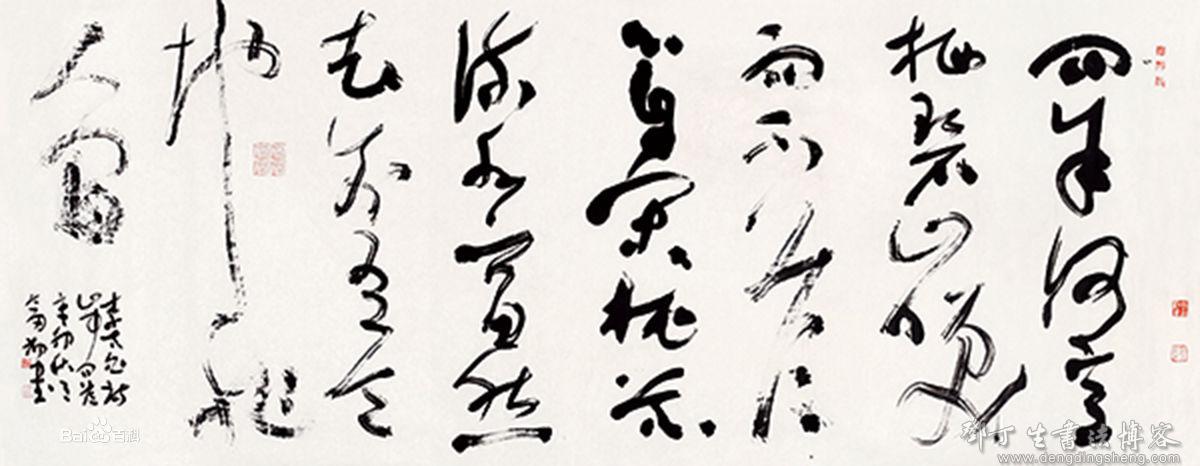 问余何意
栖碧山笑
而不答
心自闲桃花
流水窅然
去别有天
地非
人间
李太白诗
山中问答
辛卯
书
Bai百科
鄧丁生書法博客
www.dengdingsheng.com